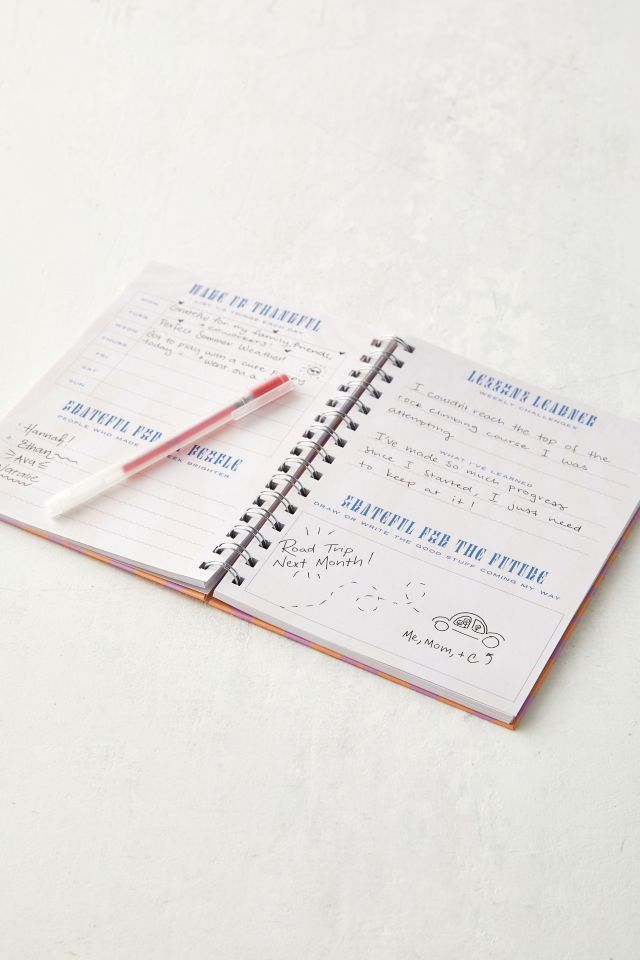 MADE ME THANKFUL
LIST 1-3 THINGS EACH DAY
MON
Grateful for my family, friends,
+ coworkers!
TUES
Perfect Summer Weather
WED
Got to play with a cute puppy
today + went on a
THURS
FRI
SAT
SUN
GRATEFUL FOR PEOPLE
PEOPLE WHO MADE WEEK BRIGHTER
Hannah!
Ethan
Ava
Natalie
LESSONS LEARNED
WEEKLY CHALLENGES
I couldn't reach the top of the
rock climbing course I was
attempting
WHAT I'VE LEARNED
I've made so much progress
since I started, I just need
to keep at it!
GRATEFUL FOR THE FUTURE
DRAW OR WRITE THE GOOD STUFF COMING MY WAY
Road Trip
Next Month!
Me, Mom, + C